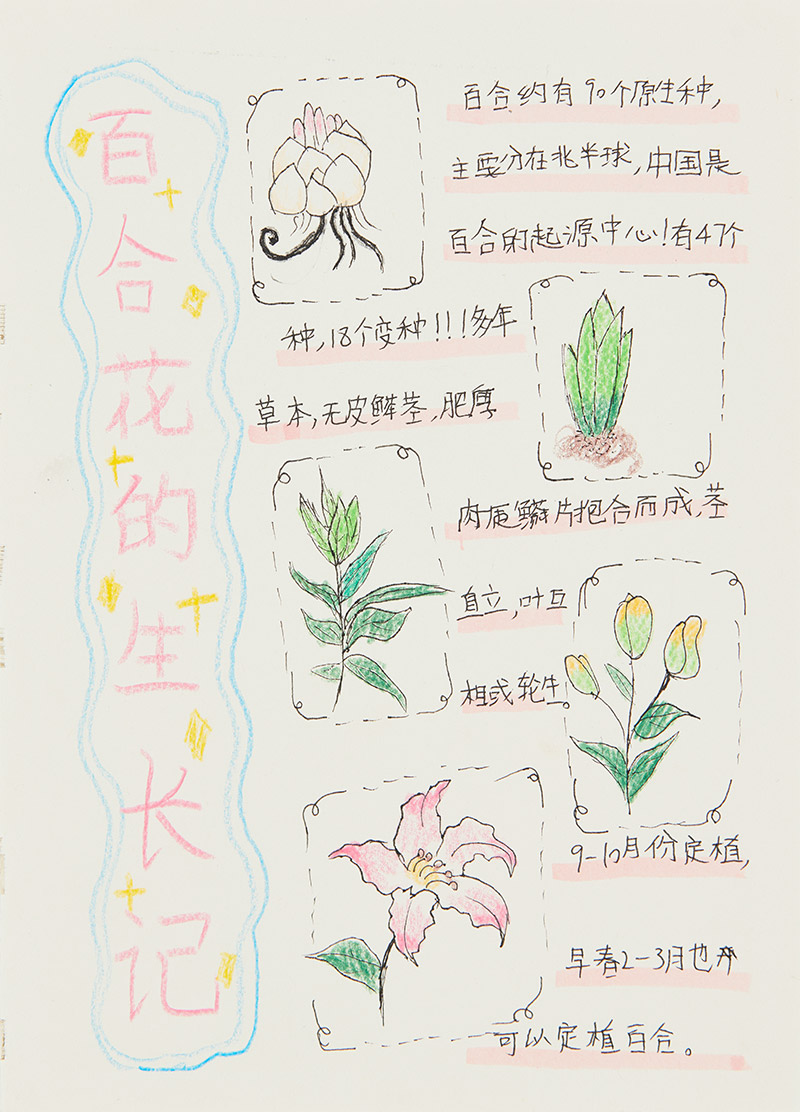 百合花的生长记
百合约有90个原生种,
主要分在北半球,中国是
百合的起源中心!有47个
种,18个变种!!!多年
草本,无皮鳞茎,肥厚
肉质鳞片抱合而成,茎
直立,叶互
相或轮生。
9-10月份定植,
早春2-3月也
可以定植百合。